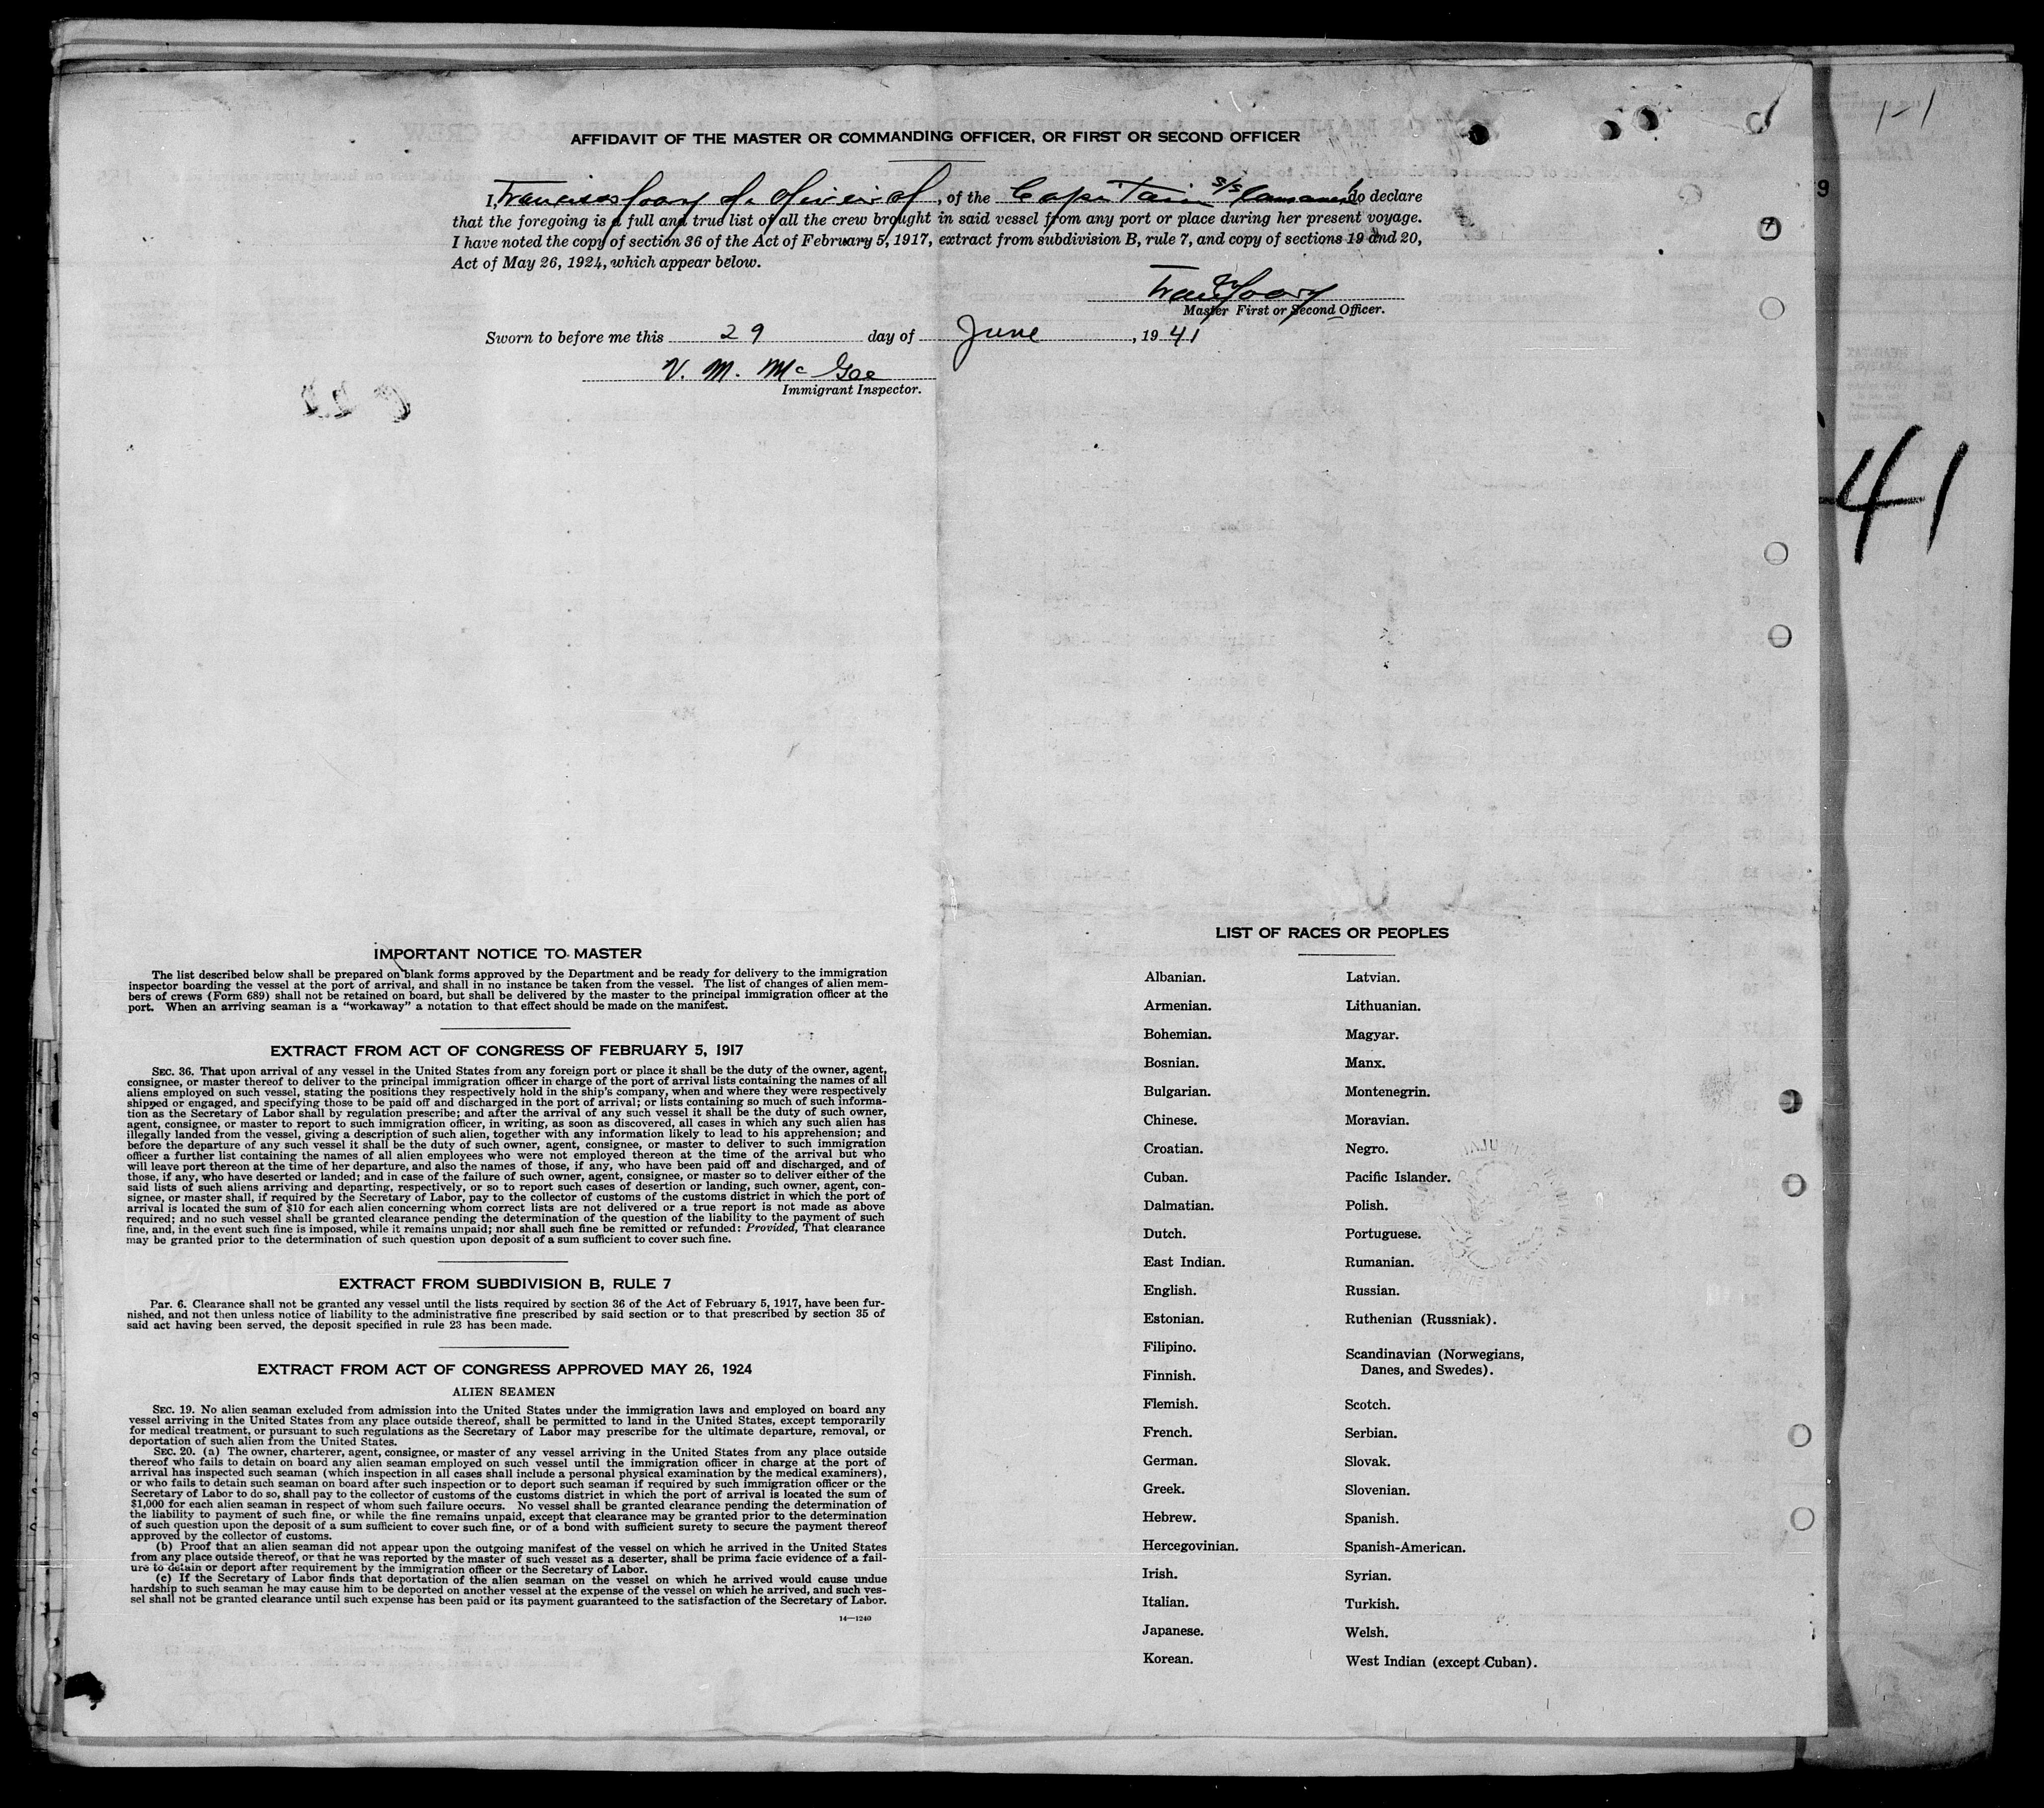 AFFIDAVIT OF THE MASTER OR COMMANDING OFFICER, OR FIRST OR SECOND OFFICER
I, of the Capitain S/S do declare
that the foregoing is a full and true list of all the crew brought in said vessel from any port or place during her present voyage.
I have noted the copy of section 36 of the Act of February 5, 1917, extract from subdivision B, rule 7, and copy of sections 19 and 20,
Act of May 26, 1924, which appear below.
Master First or Second Officer.
Sworn to before me this 29 day of June, 1941
V. M. McGee
Immigrant Inspector.
1-1
9
7
41
IMPORTANT NOTICE TO MASTER
The list described below shall be prepared on blank forms approved by the Department and be ready for delivery to the immigration
inspector boarding the vessel at the port of arrival, and shall in no instance be taken from the vessel. The list of changes of alien mem-
bers of crews (Form 689) shall not be retained on board, but shall be delivered by the master to the principal immigration officer at the
port. When an arriving seaman is a "workaway" a notation to that effect should be made on the manifest.
EXTRACT FROM ACT OF CONGRESS OF FEBRUARY 5, 1917
SEC. 36. That upon arrival of any vessel in the United States from any foreign port or place it shall be the duty of the owner, agent,
consignee, or master thereof to deliver to the principal immigration officer in charge of the port of arrival lists containing the names of all
aliens employed on such vessel, stating the positions they respectively hold in the ship's company, when and where they were respectively
shipped or engaged, and specifying those to be paid off and discharged in the port of arrival; or lists containing so much of such informa-
tion as the Secretary of Labor shall by regulation prescribe; and after the arrival of any such vessel it shall be the duty of such owner,
agent, consignee, or master to report to such immigration officer, in writing, as soon as discovered, all cases in which any such alien has
illegally landed from the vessel, giving a description of such alien, together with any information likely to lead to his apprehension; and
before the departure of any such vessel it shall be the duty of such owner, agent, consignee, or master to deliver to such immigration
officer a further list containing the names of all alien employees who were not employed thereon at the time of the arrival but who
will leave port thereon at the time of her departure, and also the names of those, if any, who have been paid off and discharged, and of
those, if any, who have deserted or landed; and in case of the failure of such owner, agent, consignee, or master so to deliver either of the
said lists of such aliens arriving and departing, respectively, or so to report such cases of desertion or landing, such owner, agent, con-
signee, or master shall, if required by the Secretary of Labor, pay to the collector of customs of the customs district in which the port of
arrival is located the sum of $10 for each alien concerning whom correct lists are not delivered or a true report is not made as above
required; and no such vessel shall be granted clearance pending the determination of the question of the liability to the payment of such
fine, and, in the event such fine is imposed, while it remains unpaid; nor shall such fine be remitted or refunded: Provided, That clearance
may be granted prior to the determination of such question upon deposit of a sum sufficient to cover such fine.
EXTRACT FROM SUBDIVISION B, RULE 7
Par. 6. Clearance shall not be granted any vessel until the lists required by section 36 of the Act of February 5, 1917, have been fur-
nished, and not then unless notice of liability to the administrative fine prescribed by said section or to that prescribed by section 35 of
said act having been served, the deposit specified in rule 23 has been made.
EXTRACT FROM ACT OF CONGRESS APPROVED MAY 26, 1924
ALIEN SEAMEN
SEC. 19. No alien seaman excluded from admission into the United States under the immigration laws and employed on board any
vessel arriving in the United States from any place outside thereof, shall be permitted to land in the United States, except temporarily
for medical treatment, or pursuant to such regulations as the Secretary of Labor may prescribe for the ultimate departure, removal, or
deportation of such alien from the United States.
SEC. 20. (a) The owner, charterer, agent, consignee, or master of any vessel arriving in the United States from any place outside
thereof who fails to detain on board any alien seaman employed on such vessel until the immigration officer in charge at the port of
arrival has inspected such seaman (which inspection in all cases shall include a personal physical examination by the medical examiners),
or who fails to detain such seaman on board after such inspection or to deport such seaman if required by such immigration officer or the
Secretary of Labor to do so, shall pay to the collector of customs of the customs district in which the port of arrival is located the sum of
$1,000 for each alien seaman in respect of whom such failure occurs. No vessel shall be granted clearance pending the determination of
the liability to payment of such fine, or while the fine remains unpaid, except that clearance may be granted prior to the determination
of such question upon the deposit of a sum sufficient to cover such fine, or of a bond with sufficient surety to secure the payment thereof
approved by the collector of customs.
(b) Proof that an alien seaman did not appear upon the outgoing manifest of the vessel on which he arrived in the United States
from any place outside thereof, or that he was reported by the master of such vessel as a deserter, shall be prima facie evidence of a fail-
ure to detain or deport after requirement by the immigration officer or the Secretary of Labor.
(c) If the Secretary of Labor finds that deportation of the alien seaman on the vessel on which he arrived would cause undue
hardship to such seaman he may cause him to be deported on another vessel at the expense of the vessel on which he arrived, and such ves-
sel shall not be granted clearance until such expense has been paid or its payment guaranteed to the satisfaction of the Secretary of Labor.
14—1240
LIST OF RACES OR PEOPLES
Albanian.
Armenian.
Bohemian.
Bosnian.
Bulgarian.
Chinese.
Croatian.
Cuban.
Dalmatian.
Dutch.
East Indian.
English.
Estonian.
Filipino.
Finnish.
Flemish.
French.
German.
Greek.
Hebrew.
Hercegovinian.
Irish.
Italian.
Japanese.
Korean.
Latvian.
Lithuanian.
Magyar.
Manx.
Montenegrin.
Moravian.
Negro.
Pacific Islander.
Polish.
Portuguese.
Rumanian.
Russian.
Ruthenian (Russniak).
Scandinavian (Norwegians,
Danes, and Swedes).
Scotch.
Serbian.
Slovak.
Slovenian.
Spanish.
Spanish-American.
Syrian.
Turkish.
Welsh.
West Indian (except Cuban).